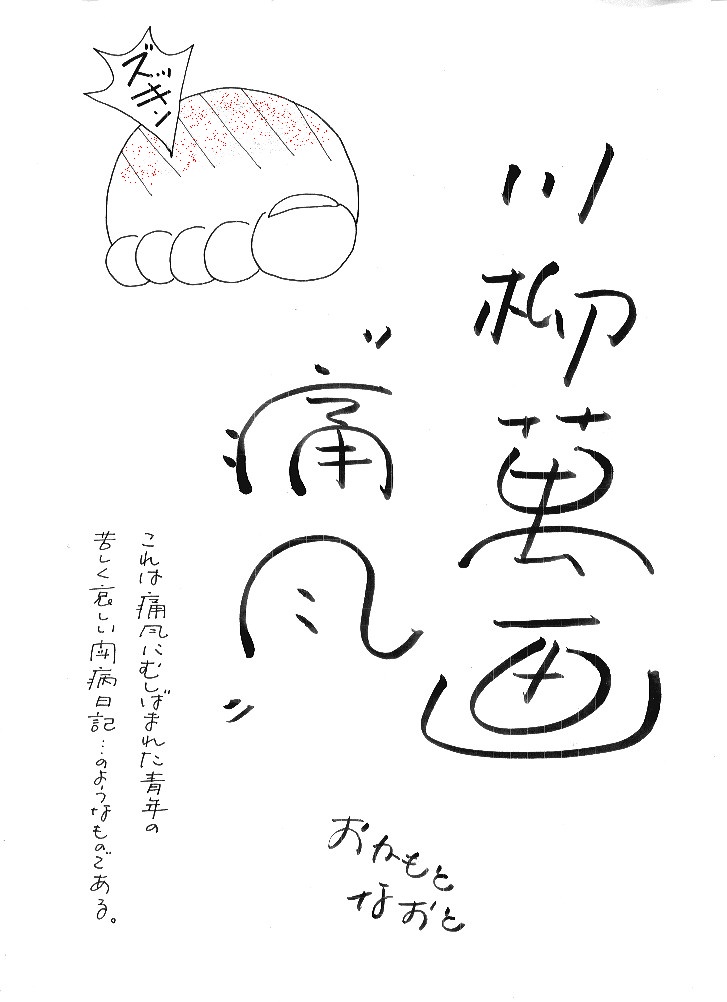 川柳萬画
"痛風"
おかもと
なおと
これは痛風にむしばまれた青年の
苦しく哀しい闘病日記…のようなものである。
ズッキン